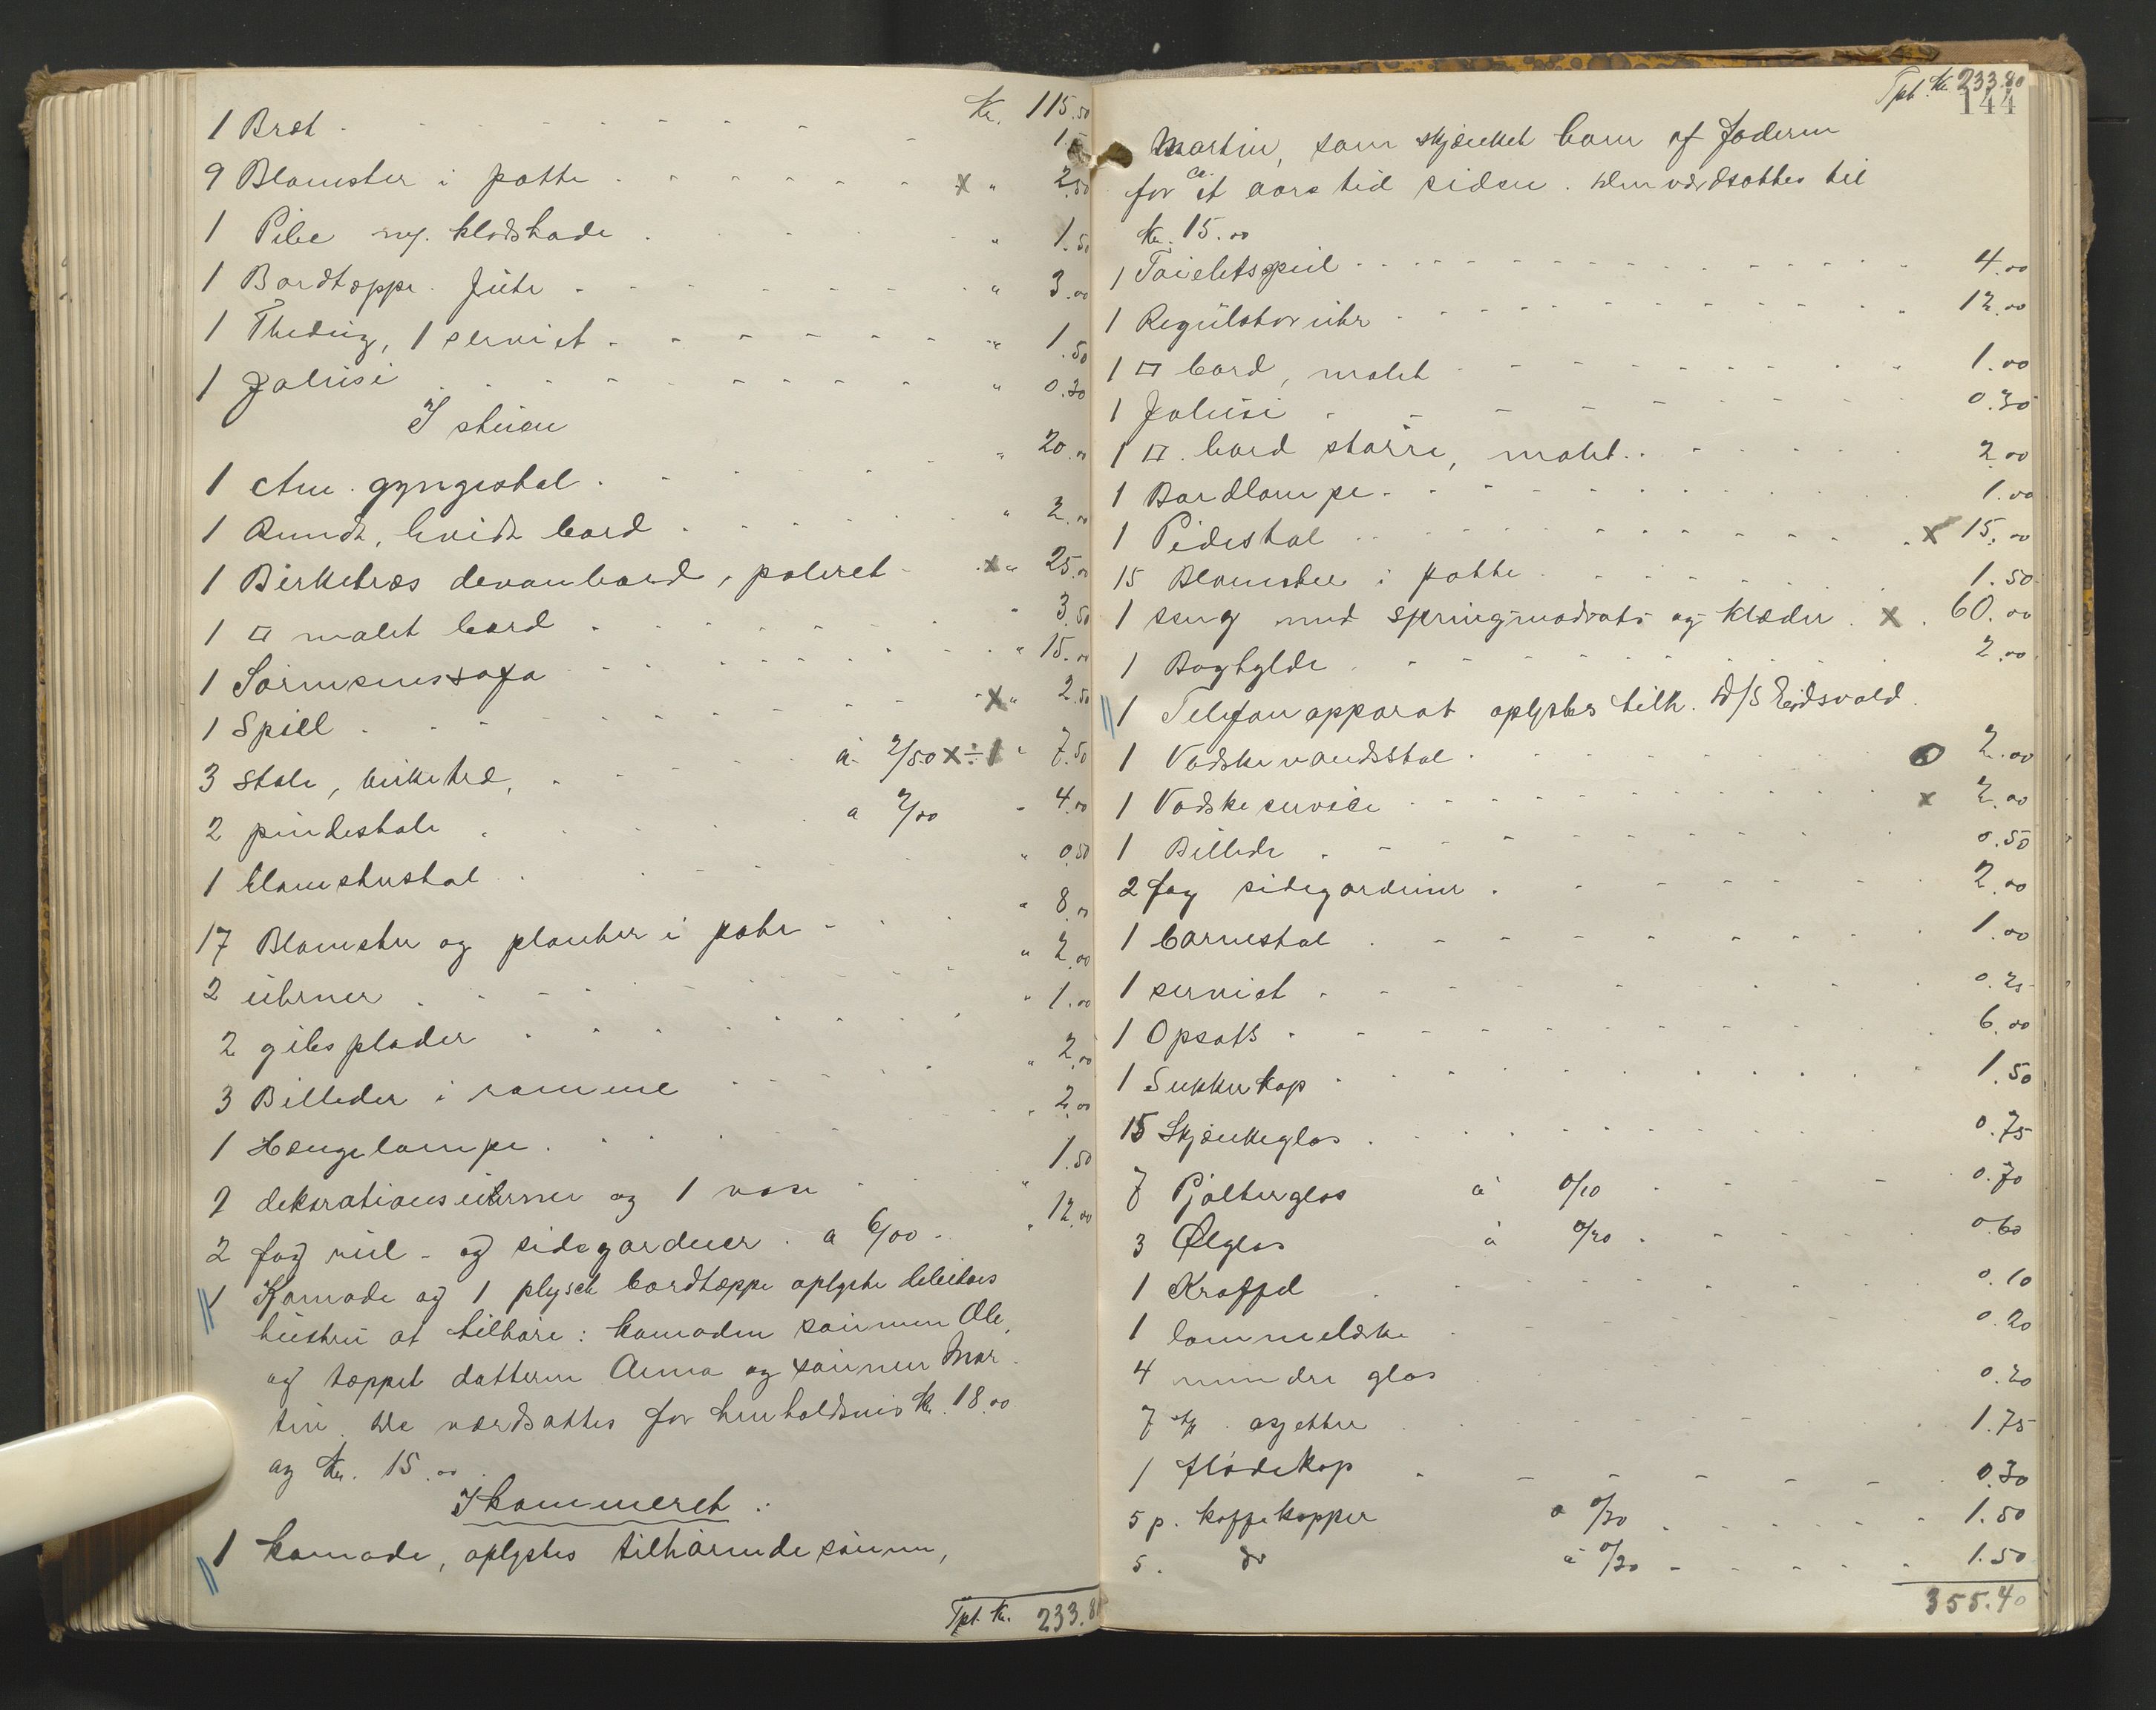 Kr. 115.50
1 Bræt - - - 1.50
9 Blomster i potte - - - x " 2.50
1 Pibe og klædshade - - " 1.50
1 Bordtæppe Jute - - - " 3.00
1 Thedug, 1 serviet - - - " 1.50
1 Jalusi - - - " 0.30
I stuen
1 Am. gyngestol - - " 20.00
1 Rundt, hvidt bord - - - " 2.00
1 Birketræs devanbord, poleret - x " 25.00
1 □ malet bord - - - " 3.50
1 Sørmemssofa - - - " 15.00
1 Spill - - - x " 2.50
3 Stole, birketræ, - - à 2/50 x ÷ 1 " 7.50
2 pindestole - - a 2/00 " 4.00
1 blomsterstol - - " 0.50
17 Blomster og planter i potte - - " 8.00
2 uhrner - - - " 2.00
2 gibsplader - - - " 1.00
3 Billeder i ramme - - - " 2.00
1 Hængelampe - - - " 2.00
2 dekorationsuhrner og 1 vase - - " 1.50
2 fag rul- og sidegardiner. a 6/00 - " 12.00
// 1 Komode og 1 plysch bordtæppe oplyste debitors
hustru at tilhøre: komoden sønnen Ole,
og tæppet datteren Anna og sønnen Mar-
tin. De værdsattes for henholdsvis Kr. 18.00
og Kr. 15.00.
I kammeret:
// 1 komode, oplystes tilhørende sønnen,
Tpt. Kr. 233.80
Tpt. Kr. 233.80
144
Martin, som skjænket ham af faderen
for ca. et aars tid siden. Den værdsattes til
Kr. 15.00
1 Toiletspeil - - - 4.00
1 Regulatoruhr - - - 12.00
1 □ bord, malet - - - 1.00
1 Jalusi - - - 0.30
1 □. bord større, malet. - - - 2.00
1 Bordlampe - - - 1.00
1 Pidestal - - - x 15.00
15 Blomster i potte - - - 1.50
1 seng med springmadrats og klæder. x . 60.00
1 Boghylde - - - 2.00
// 1 Telefonapparat oplystes tilh. A/S Eidsvold.
1 Vaskevandsstol - - - 2.00
1 Vadskeservice - - - x 2.00
1 Billede - - - 0.50
2 fag sidegardiner - - - 2.00
1 barnestol - - - 1.00
1 serviet - - - 0.25
1 Opsats - - - 6.00
1 Sukkerkop - - - 1.50
15 Skjænkeglas - - - 0.75
7 Pjolterglas à 0/10 - - - 0.70
3 Ølglas à 0/20 - - - 0.60
1 Kraffel - - - 0.10
1 lommelærke - - - 0.20
4 mindre glas - - - 0.20
7 st. asjetter - - - 1.75
1 fløtekop - - - 0.30
5 p. kaffekopper a 0/30 - - - 1.50
5. do à 0/30 - - - 1.50
355.40